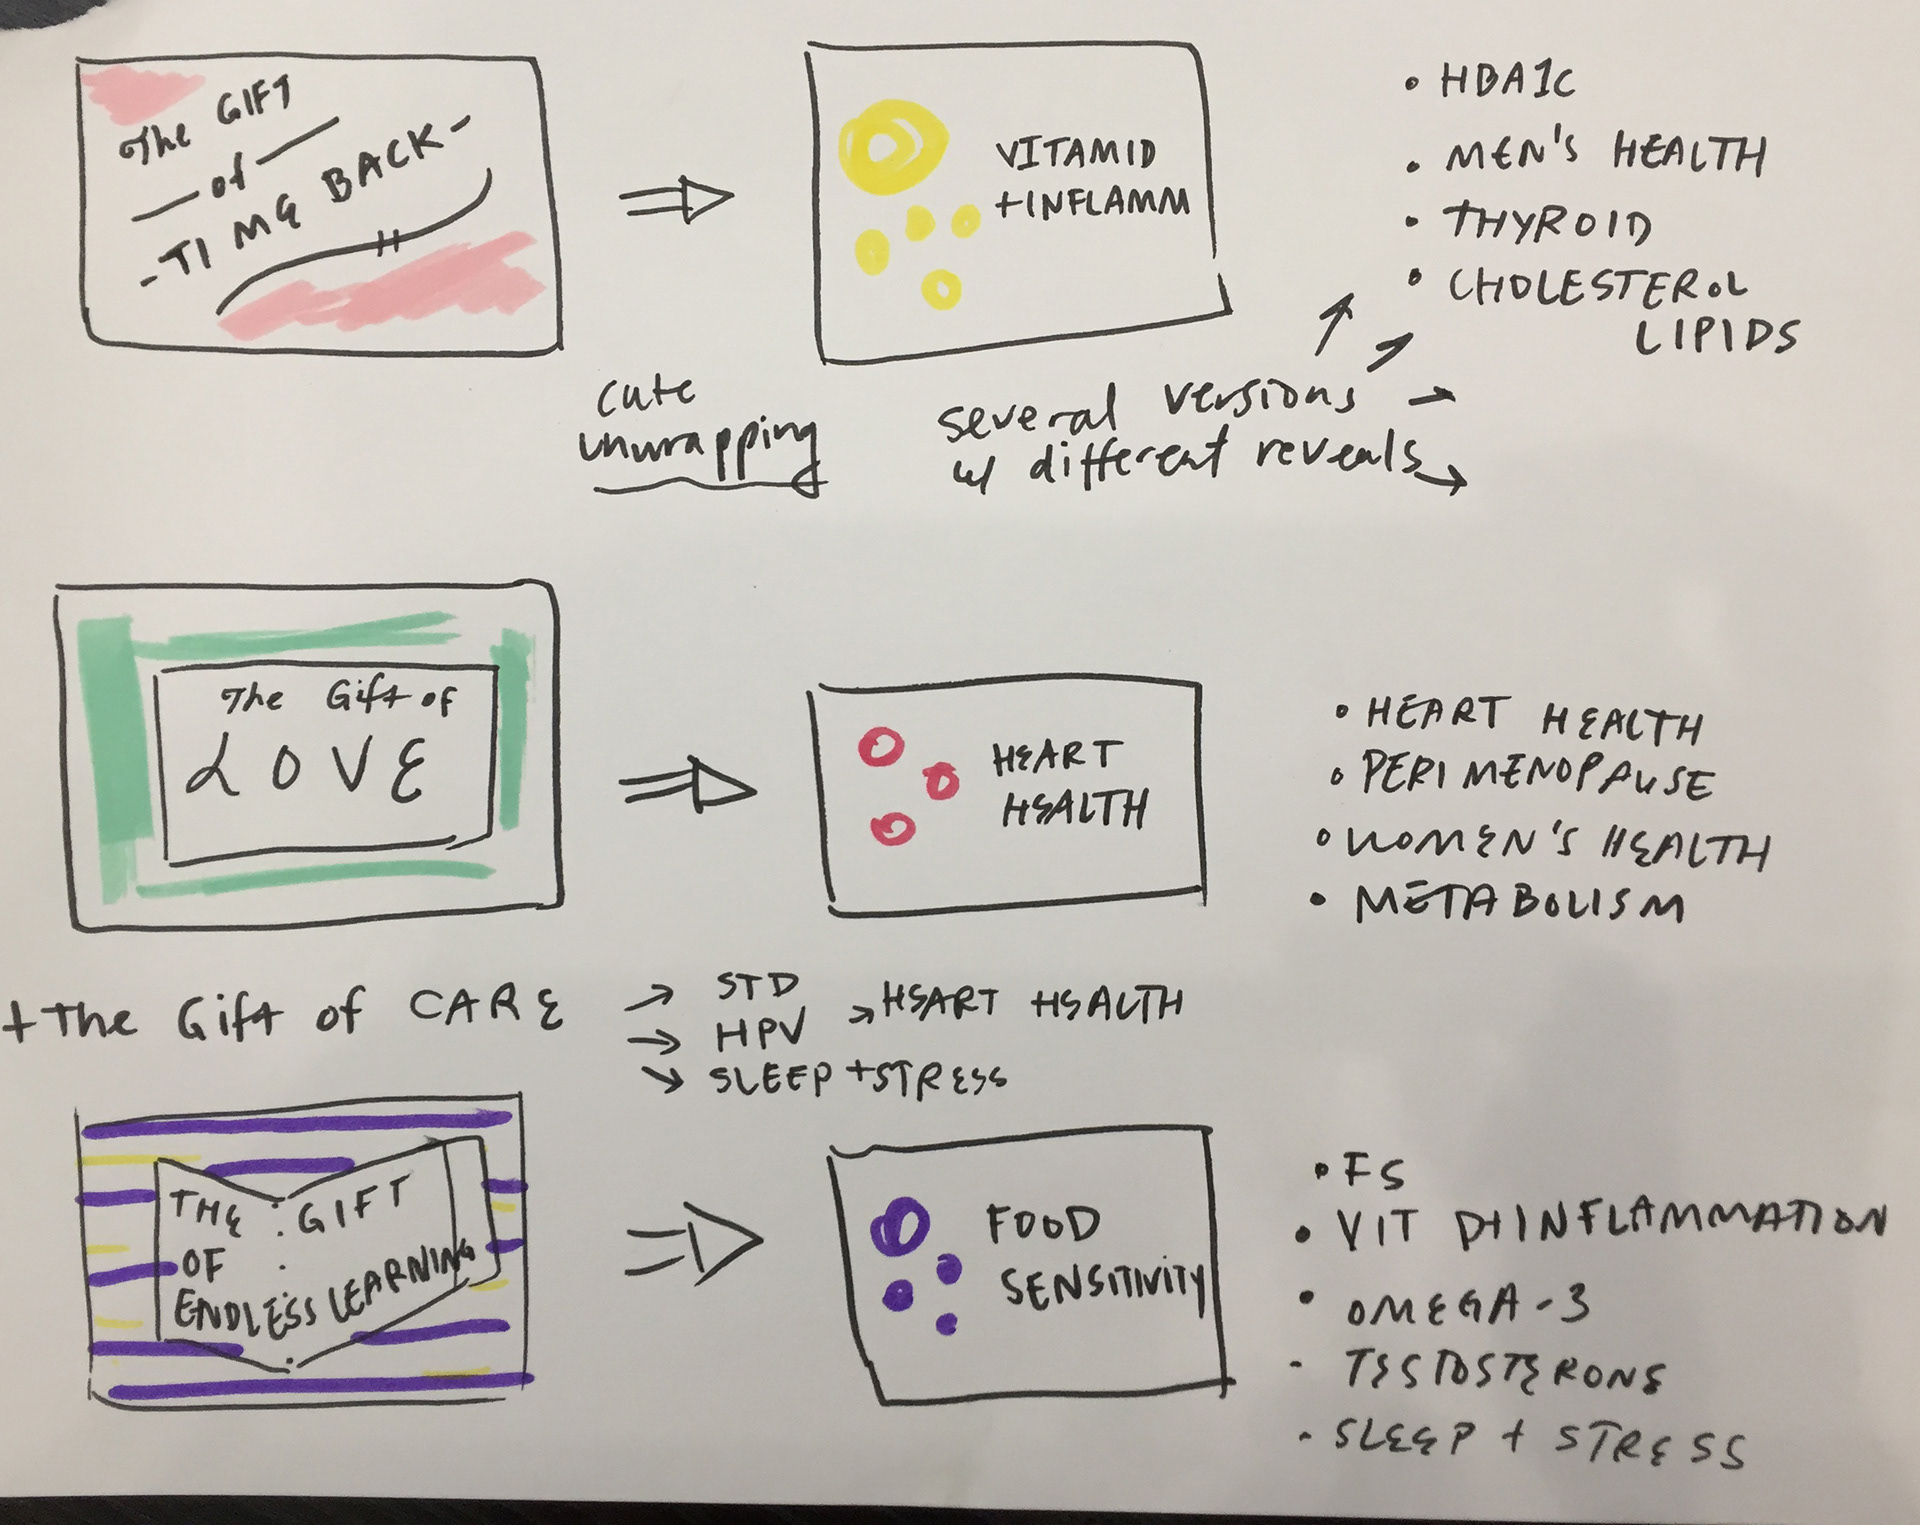 The GIFT
of
-TIME BACK-
VITAMID
+INFLAMM
• HBA1C
• MEN'S HEALTH
• THYROID
• CHOLESTEROL
LIPIDS
cute
unwrapping
several versions
w/ different reveals
The Gift of
LOVE
HEART
HEALTH
• HEART HEALTH
• PERIMENOPAUSE
• WOMEN'S HEALTH
• METABOLISM
+ The Gift of CARE
→ STD
→ HPV → HEART HEALTH
→ SLEEP + STRESS
THE GIFT
OF
ENDLESS LEARNING
FOOD
SENSITIVITY
• FS
• VIT D+INFLAMMATION
• OMEGA-3
- TESTOSTERONE
- SLEEP + STRESS